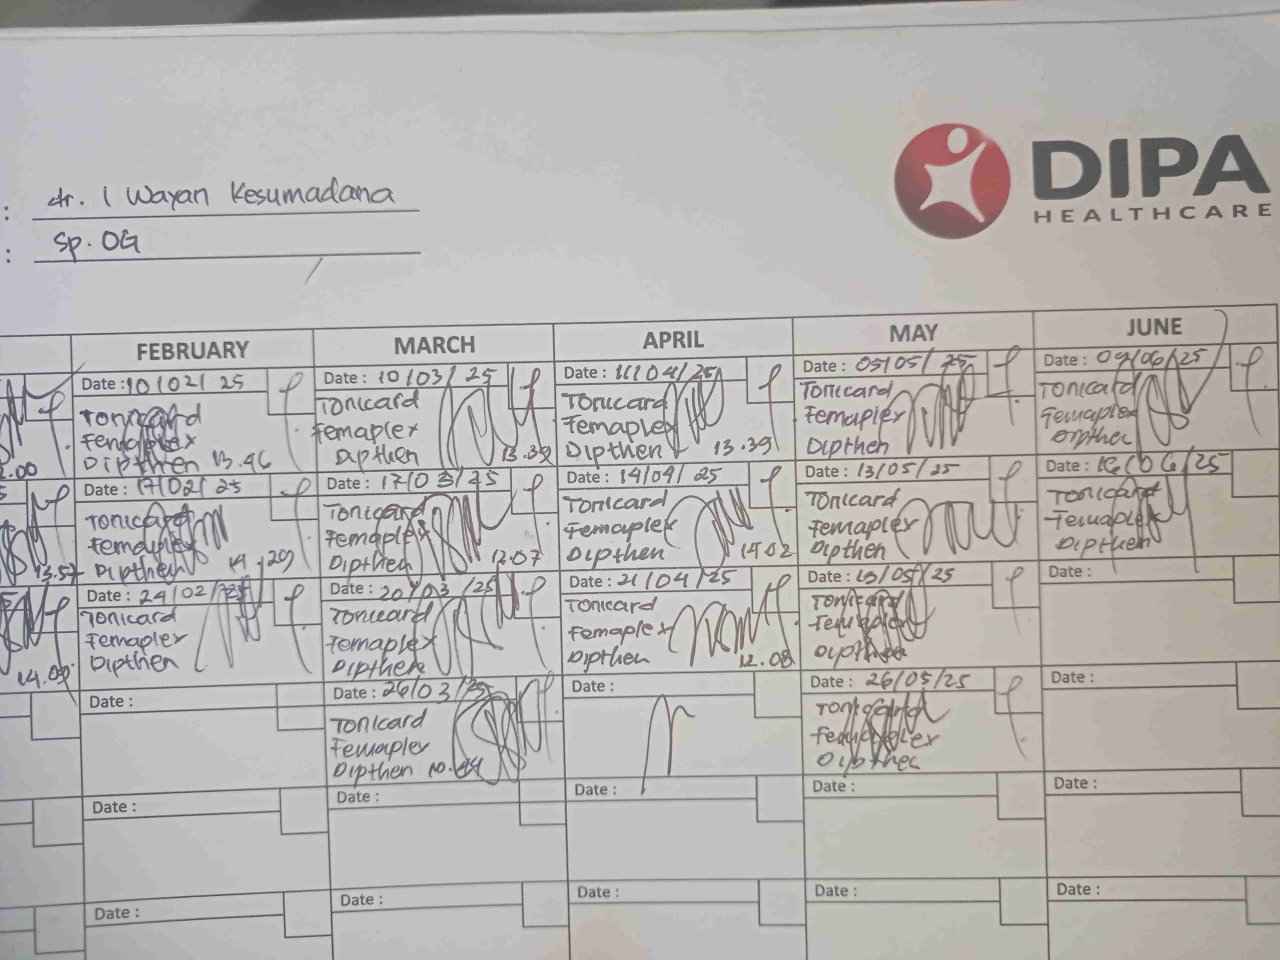 DIPA
HEALTHCARE
: dr. I Wayan Kesumadana
: Sp. OG
FEBRUARY
MARCH
APRIL
MAY
JUNE
Date : 10/02/25
Tonicard
Femaplex
Dipthen 13.46
Date : 10/03/25
Tonicard
Femaplex
Dipthen 13.39
Date : 11/04/25
Tonicard
Femaplex
Dipthen 13.39
Date : 05/05/25
Tonicard
Femaplex
Dipthen
Date : 09/06/25
Tonicard
Femaplex
Dipthen
Date : 17/02/25
Tonicard
Femaplex
Dipthen 14.29
Date : 17/03/25
Tonicard
Femaplex
Dipthen 12.07
Date : 14/04/25
Tonicard
Femaplex
Dipthen 14.02
Date : 13/05/25
Tonicard
Femaplex
Dipthen
Date : 16/06/25
Tonicard
Femaplex
Dipthen
13.57
Date : 24/02/25
Tonicard
Femaplex
Dipthen
Date : 20/03/25
Tonicard
Femaplex
Dipthen
Date : 21/04/25
Tonicard
Femaplex
Dipthen 12.08
Date : 19/05/25
Tonicard
Femaplex
Dipthen
Date :
14.09
Date :
Date : 26/03/25
Tonicard
Femaplex
Dipthen
Date :
Date : 26/05/25
Tonicard
Femaplex
Dipthen
Date :
Date :
Date :
Date :
Date :
Date :
Date :
Date :
Date :
Date :
Date :